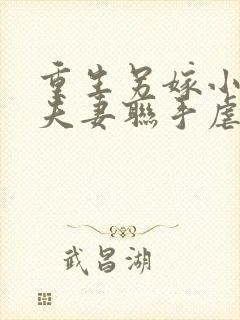 重生另嫁小
夫妻聯手虐
武昌湖